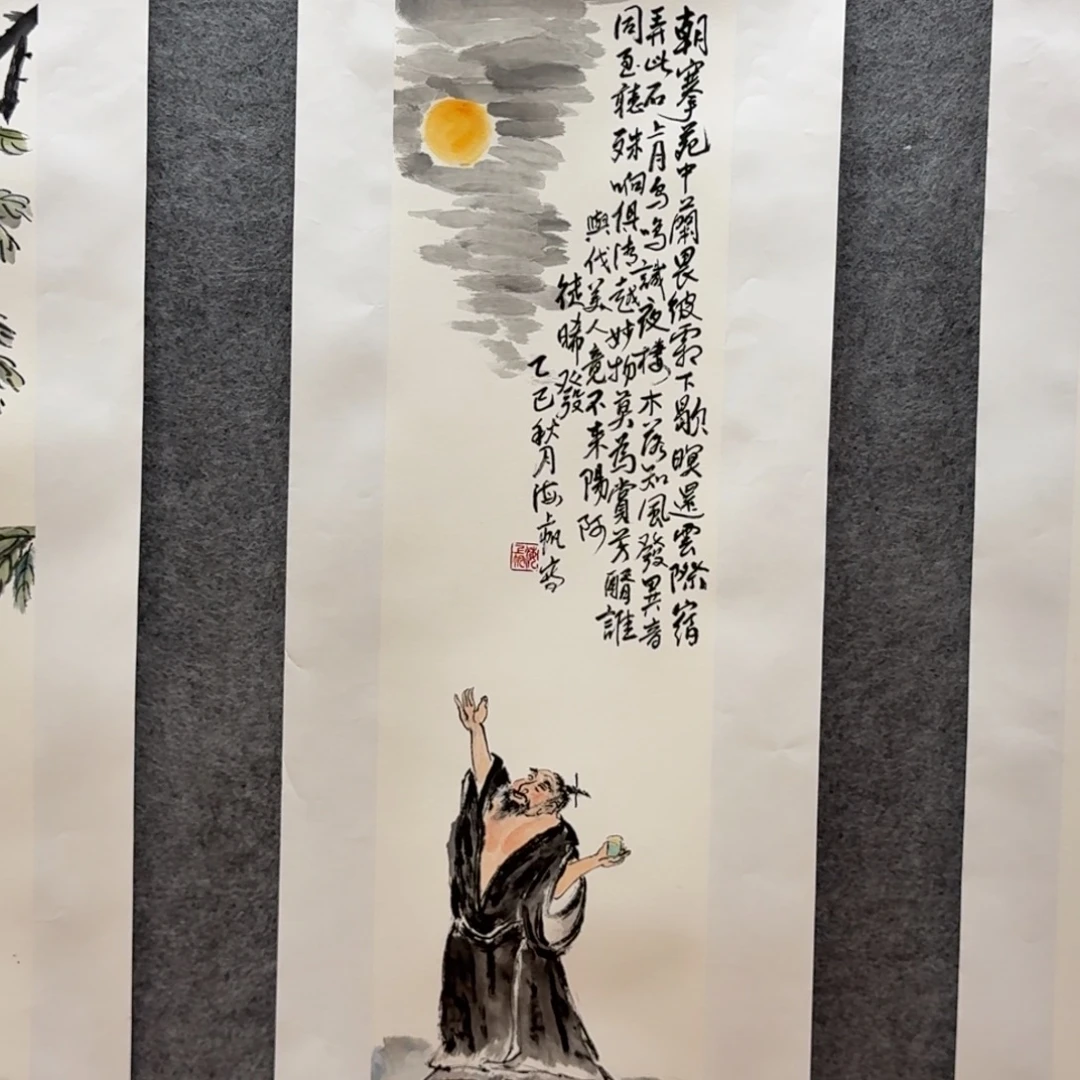 朝搴苑中蘭畏彼霜下歇暝還雲際宿
弄此石上月鳥鳴識夜棲木落知風發異音
同至聽殊响俱清越妙物莫為賞芳醑誰
與伐美人竟不來陽阿
徒晞發
乙巳秋月海上